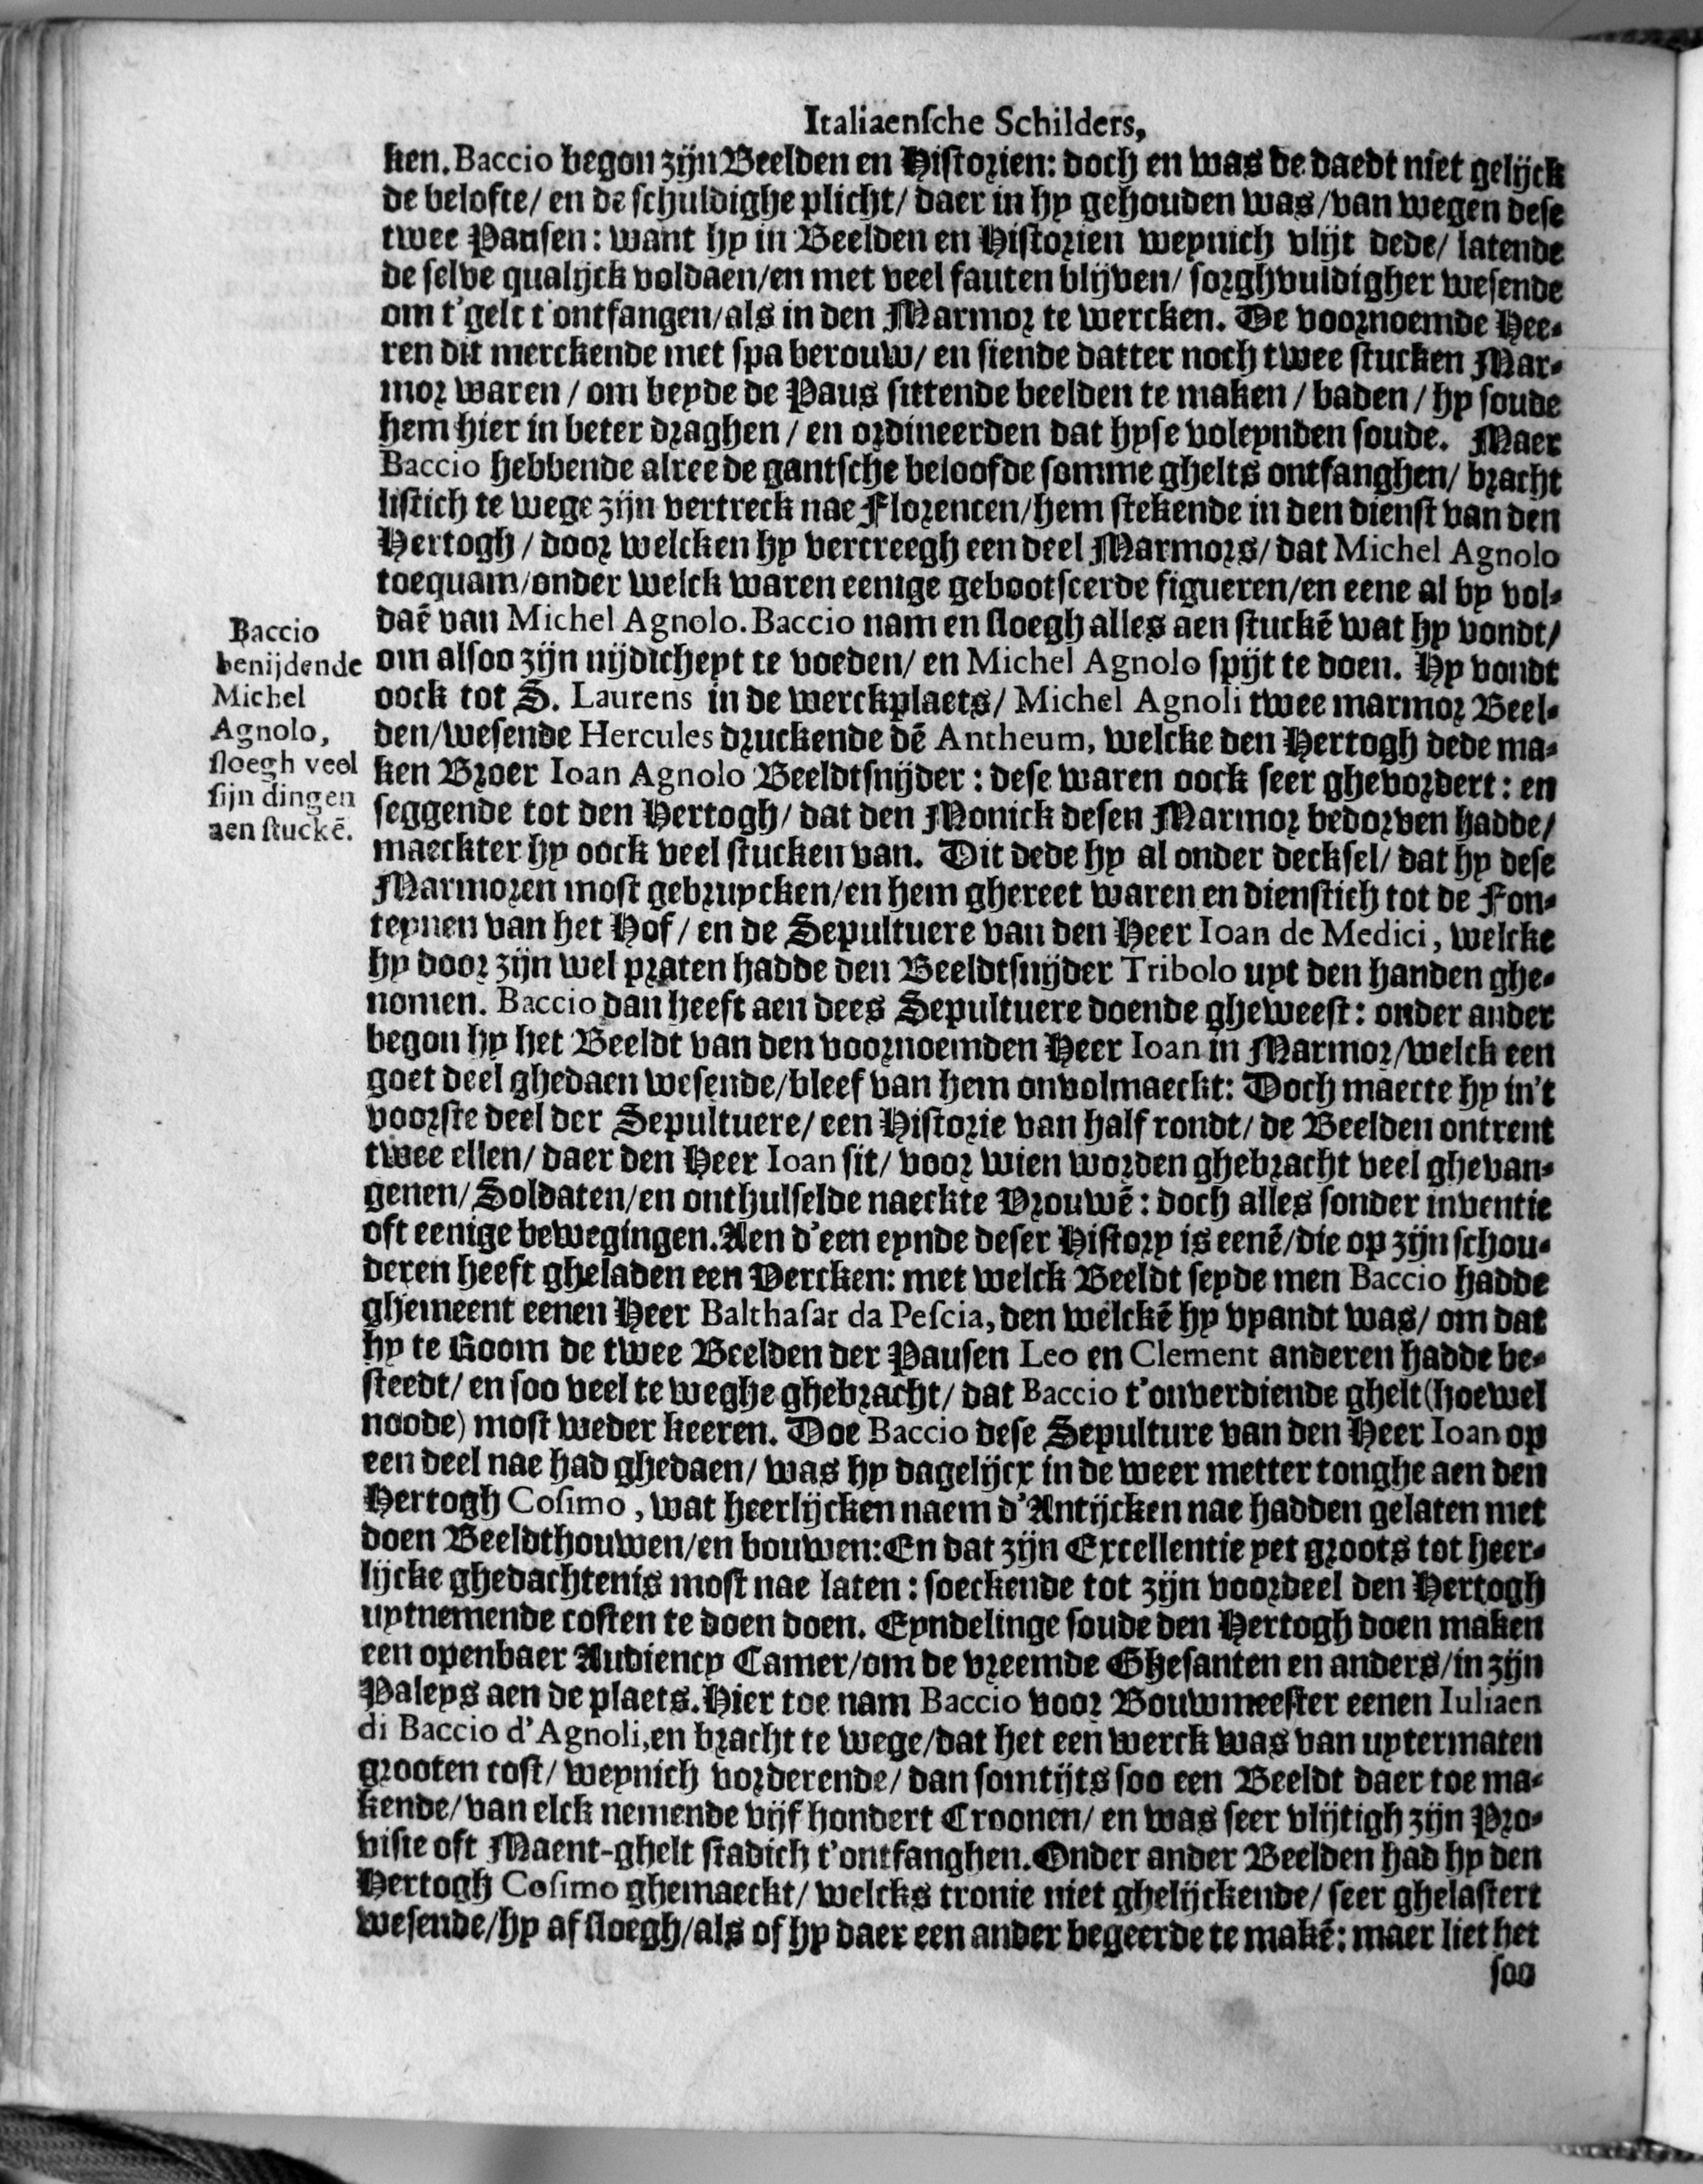 Italiaensche Schilders,
ken. Baccio begon zijn Beelden en Historien: doch en was de daedt niet gelijck
de belofte/ en de schuldighe plicht/ daer in hy gehouden was/ van wegen dese
twee Pausen: want hy in Beelden en Historien weynich vlijt dede/ latende
de selve qualijck voldaen/ en met veel fauten blijven/ sorghvuldigher wesende
om t'gelt t'ontfangen/ als in den Marmor te wercken. De voornoemde Hee-
ren dit merckende met spa berouw/ en siende datter noch twee stucken Mar-
mor waren/ om beyde de Paus sittende beelden te maken/ baden/ hy soude
hem hier in beter draghen/ en ordineerden dat hyse voleynden soude. Maer
Baccio hebbende alree de gantsche beloofde somme ghelts ontfanghen/ bracht
listich te wege zijn vertreck nae Florencen/ hem stekende in den dienst van den
Hertogh/ door welcken hy vercreegh een deel Marmors/ dat Michel Agnolo
toequam/ onder welck waren eenige gebootseerde figueren/ en eene al by vol-
daē van Michel Agnolo. Baccio nam en sloegh alles aen stuckē wat hy vondt/
om alsoo zijn nijdicheyt te voeden/ en Michel Agnolo spijt te doen. Hy vondt
oock tot S. Laurens in de werckplaets/ Michel Agnoli twee marmor Beel-
den/ wesende Hercules druckende dē Antheum, welcke den Hertogh dede ma-
ken Broer Ioan Agnolo Beeldtsnijder: dese waren oock seer ghevordert: en
seggende tot den Hertogh/ dat den Monick desen Marmor bedorven hadde/
maeckter hy oock veel stucken van. Dit dede hy al onder decksel/ dat hy dese
Marmoren most gebruycken/ en hem ghereet waren en dienstich tot de Fon-
teynen van het Hof/ en de Sepultuere van den Heer Ioan de Medici, welcke
hy door zijn wel praten hadde den Beeldtsnijder Tribolo uyt den handen ghe-
nomen. Baccio dan heeft aen dees Sepultuere doende gheweest: onder ander
begon hy het Beeldt van den voornoemden Heer Ioan in Marmor/ welck een
goet deel ghedaen wesende/ bleef van hem onvolmaeckt: Doch maecte hy in't
voorste deel der Sepultuere/ een Historie van half rondt/ de Beelden ontrent
twee ellen/ daer den Heer Ioan sit/ voor wien worden ghebracht veel ghevan-
genen/ Soldaten/ en onthulselde naeckte Vrouwē: doch alles sonder inventie
oft eenige bewegingen. Aen d'een eynde deser History is eenē/ die op zijn schou-
deren heeft gheladen een Vercken: met welck Beeldt seyde men Baccio hadde
ghemeent eenen Heer Balthasar da Pescia, den welckē hy vyandt was/ om dat
hy te Room de twee Beelden der Pausen Leo en Clement anderen hadde be-
steedt/ en soo veel te weghe ghebracht/ dat Baccio t'onverdiende ghelt (hoewel
noode) most weder keeren. Doe Baccio dese Sepulture van den Heer Ioan op
een deel nae had ghedaen/ was hy dagelijcx in de weer metter tonghe aen den
Hertogh Cosimo, wat heerlijcken naem d'Antijcken nae hadden gelaten met
doen Beeldthouwen/ en bouwen: En dat zijn Excellentie yet groots tot heer-
lijcke ghedachtenis most nae laten: soeckende tot zijn voordeel den Hertogh
uytnemende costen te doen doen. Eyndelinge soude den Hertogh doen maken
een openbaer Audiency Camer/ om de vreemde Ghesanten en anders/ in zijn
Paleys aen de plaets. Hier toe nam Baccio voor Bouwmeester eenen Iuliaen
di Baccio d'Agnoli, en bracht te wege/ dat het een werck was van uytermaten
grooten cost/ weynich vorderende/ dan somtijts soo een Beeldt daer toe ma-
kende/ van elck nemende vijf hondert Croonen/ en was seer vlijtigh zijn Pro-
visie oft Maent-ghelt stadich t'ontfanghen. Onder ander Beelden had hy den
Hertogh Cosimo ghemaeckt/ welcks tronie niet ghelijckende/ seer ghelastert
wesende/ hy af sloegh/ als of hy daer een ander begeerde te makē: maer liet het
soo
Baccio
benijdende
Michel
Agnolo,
sloegh veel
sijn dingen
aen stuckē.